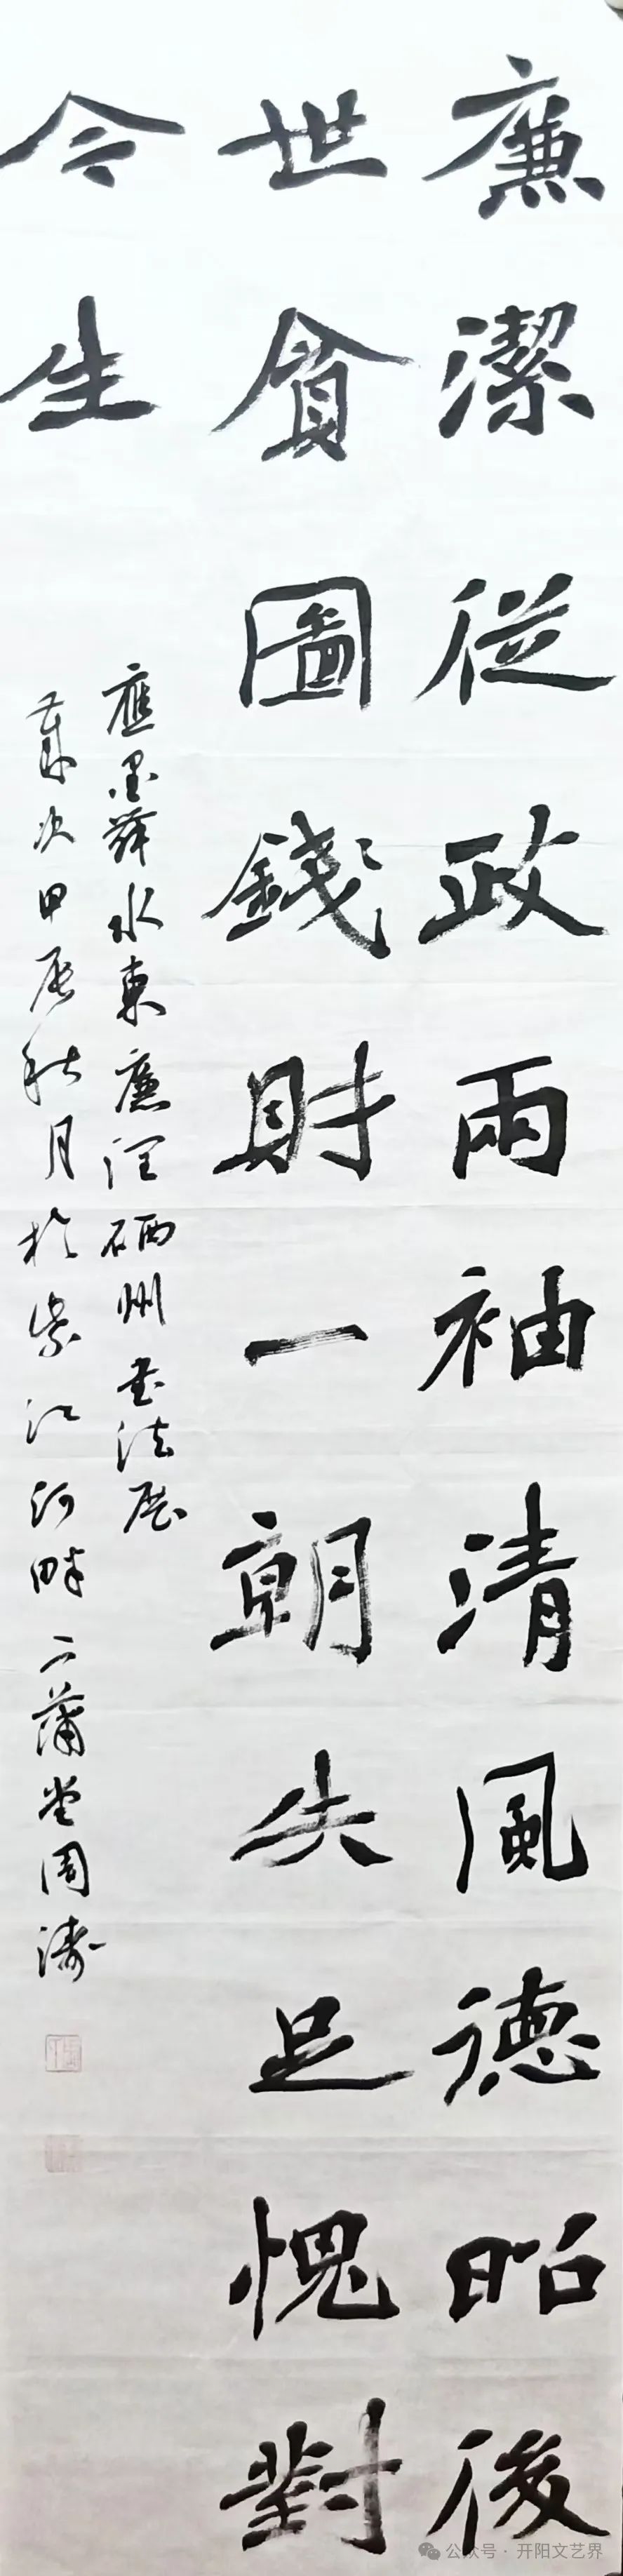 廉潔從政兩袖清風德昭後
世貪圖錢財一朝失足愧對
今生
應墨舞水東廉潤硒州書法展
歲次甲辰秋月於紫江河畔二蒲堂周濤
公众号 · 开阳文艺界